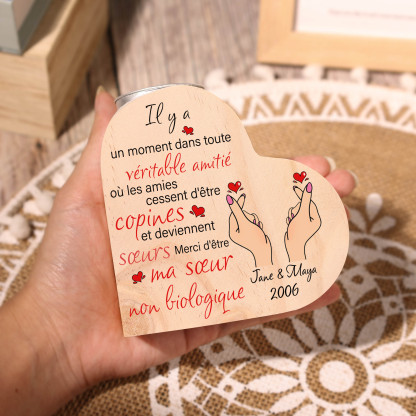 Il y a
un moment dans toute
véritable amitié
où les amies
cessent d'être
copines
et deviennent
sœurs Merci d'être
ma sœur
non biologique
Jane & Maya
2006